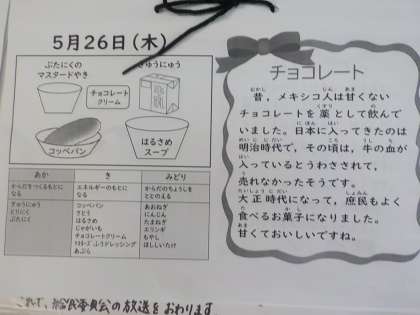 5月26日(木)
ぶたにくの
マスタードやき
ぎゅうにゅう
チョコレート
クリーム
コッペパン
はるさめ
スープ
あか
き
みどり
からだをつくるもとに
なる
エネルギーのもとに
なる
からだのちょうしを
ととのえる
ぎゅうにゅう
ぶたにく
とりにく
コッペパン
さとう
はるさめ
じゃがいも
チョコレートクリーム
ふうドレッシング
あぶら
あおねぎ
にんじん
たまねぎ
エリンギ
もやし
ほししいたけ
チョコレート
昔、メキシコ人は甘くない
チョコレートを薬として飲んで
いました。日本に入ってきたのは
明治時代で、その頃は、牛の血が
入っているとうわさされて、
売れなかったそうです。
大正時代になって、庶民もよく
食べるお菓子になりました。
甘くておいしいですね。
これで、給食委員会の放送をおわります